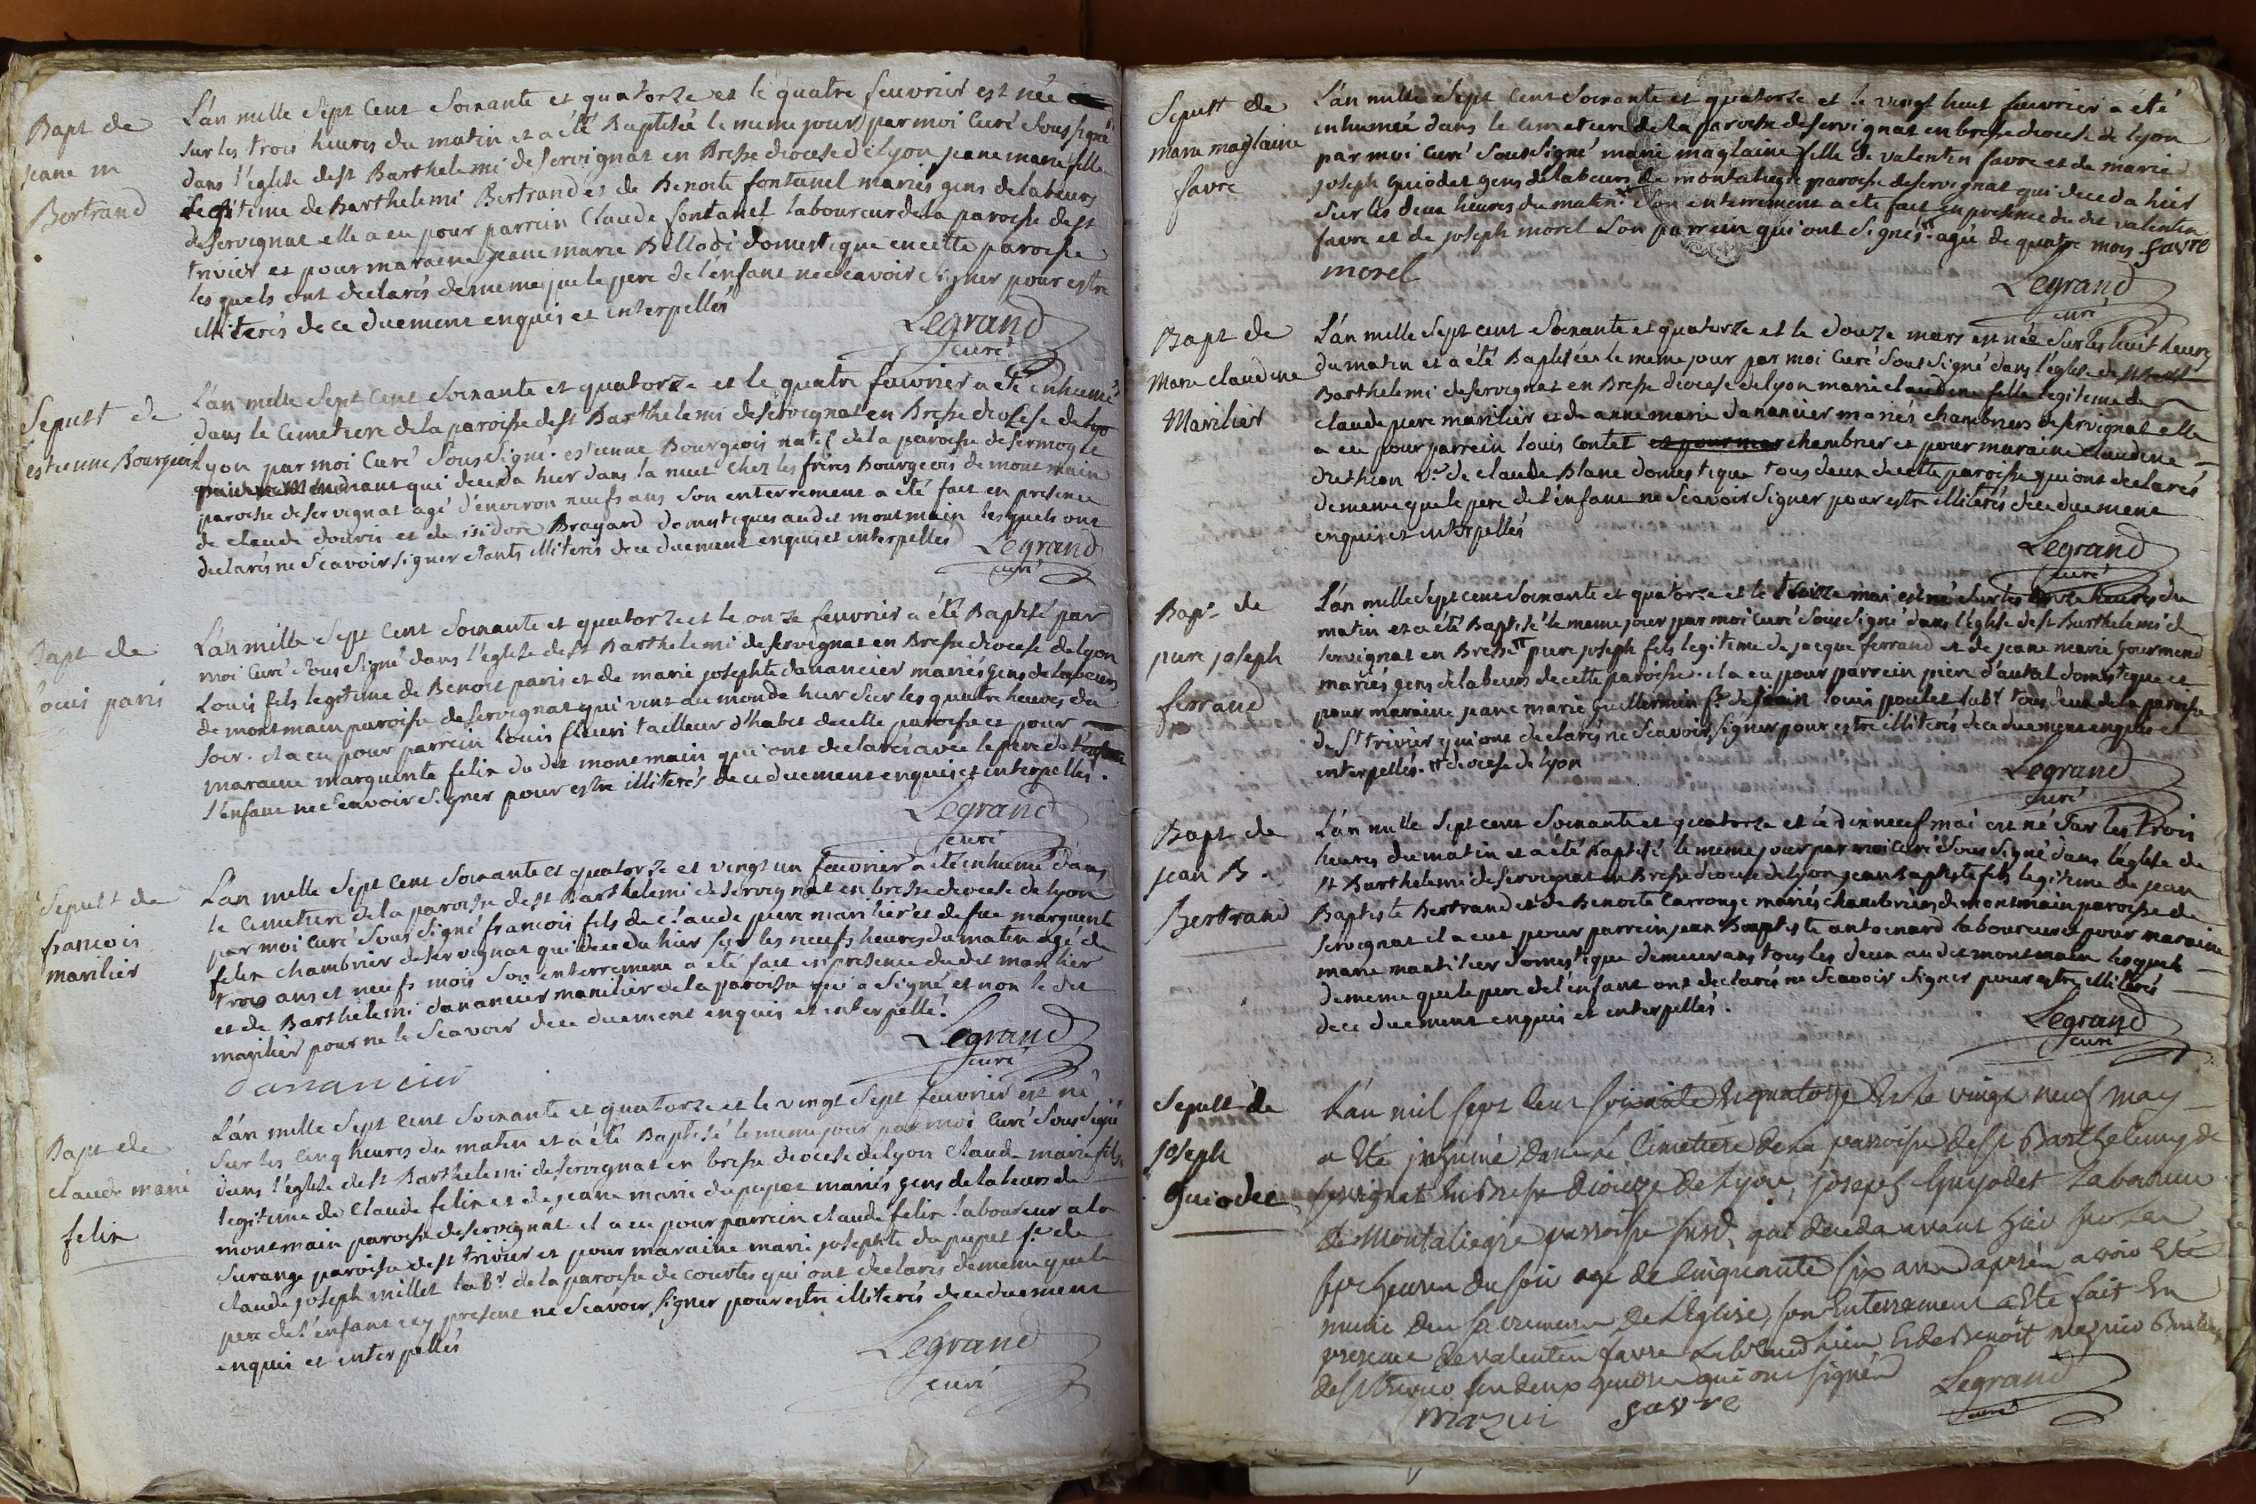 Bapt de
jeane m
Bertrand
L'an mille sept cent soixante et quatorze et le quatre feuvrier est née
sur les trois heures du matin et a été Baptisée le meme jour par moi Curé sous signé
dans l'eglise de st Barthelemi de servignat en Bresse diocese de lyon jeane marie fille
legitime de Barthelemi Bertrand et de Benoite fontanel mariés gens de labeurs
de servignat elle a eu pour parrein Claude fontanel laboureur de la paroisse de st
trivier et pour maraine jeane marie domestique en cette paroisse
les quels ont declarés de meme que le pere de l'enfant ne scavoir signer pour estre
illiterés de ce duement enquis et interpellés
Legrand
curé
Sepult de
estienne Bourgeois
L'an mille sept cent soixante et quatorze et le quatre feuvrier a été inhumé
dans le Cimetiere de la paroisse de st Barthelemi de servignat en Bresse diocese de
lyon par moi Curé sous signé estienne Bourgeois natif de la paroisse de sermoyé
qui deceda hier dans la nuit chez les freres Bourgeois de montmain
paroisse de servignat agé d'environ neufs ans son enterrement a été fait en presence
de claude douvris et de isidore Brayard domestiques audit montmain lesquels ont
declarés ne scavoir signer etants illiterés de ce duement enquis et interpelles
Legrand
curé
Bapt de
louis paris
L'an mille sept cent soixante et quatorze et le onze feuvrier a été Baptisé par
moi Curé sous signé dans l'eglise de st Barthelemi de servignat en Bresse diocese de lyon
Louis fils legitime de Benoit paris et de marie josephte danancier mariés gens de labeurs
de montmain paroisse de servignat qui vint au monde hier sur les quatre heures du
soir. il a eu pour parrein louis fleuri tailleur d'habit de cette paroisse et pour
maraine marguerite felix du dit montmain qui ont declarés avec le pere de
l'enfant ne scavoir signer pour estre illiterés de ce duement enquis et interpellés.
Legrand
curé
Sepult de
francois
marilier
L'an mille sept cent soixante et quatorze et vingt un feuvrier a été inhumé dans
le Cimetiere de la paroisse de st Barthelemi de servignat en bresse diocese de lyon
par moi Curé sous signé francois fils de claude pierre marilier et de fue marguerite
felix chambrier de servignat qui deceda hier sur les neufs heures du matin agé de
trois ans et neufs mois son enterrement a été fait en presence du dit marilier
et de Barthelemi danancier manilier de la paroisse qui a signé et non le dit
marilier pour ne le scavoir de ce duement enquis et interpellé.
Legrand
curé
danancier
Bapt de
claude marie
felix
L'an mille sept cent soixante et quatorze et le vingt sept feuvrier est né
sur les cinq heures du matin et a été Baptisé le meme jour par moi Curé sous signé
dans l'eglise de st Barthelemi de servignat en bresse diocese de lyon Claude marie fils
legitime de Claude felix et de jeane marie dupupet mariés gens de labeurs de
montmain paroisse de servignat il a eu pour parrein claude felix laboureur a la
surange paroisse de st trivier et pour maraine marie josephte dupupet fe de
claude joseph millet labr de la paroisse de courtes qui ont declarés de meme que le
pere de l'enfant icy present ne scavoir signer pour estre illiterés de ce duement
enquis et interpellés
Legrand
curé
Sepult de
marie maglaine
favre
L'an mille sept cent soixante et quatorze et le vingt huit feuvrier a été
inhumée dans le cimetiere de la paroisse de servignat en bresse diocese de lyon
par moi Curé sous signé marie maglaine fille de valentin favre et de marie
joseph guiodet gens de labeurs de montaliegre paroisse de servignat qui deceda hier
sur les deux heures du matin. son enterrement a été fait en presence du dit valentin
favre et de joseph morel son parrein qui ont signés. agée de quatre mois favre
morel
Legrand
curé
Bapt de
Marie claudine
Marilier
L'an mille sept cent soixante et quatorze et le douze mars est née sur les huit heures
du matin et a été Baptisée le meme jour par moi Curé sous signé dans l'eglise de st
Barthelemi de servignat en Bresse diocese de lyon marie claudine fille legitime de
claude pierre marilier et de anne marie danancier mariés chambriers de servignat elle
a eu pour parrein louis contet et pour mar chambrier et pour maraine claudine
duthion ve de claude Blanc domestique tous deux de cette paroisse qui ont declarés
de meme que le pere de l'enfant ne scavoir signer pour estre illiterés de ce duement
enquis et interpellés
Legrand
curé
Bapt de
pierre joseph
ferrand
L'an mille sept cent soixante et quatorze et le treize mai est né sur les onze heures du
matin et a été Baptisé le meme jour par moi Curé sous signé dans l'eglise de st Barthelemi de
servignat en Bresse pierre joseph fils legitime de jacque ferrand et de jeane marie gourmend
mariés gens de labeurs de cette paroisse. il a eu pour parrein pierre d'autal domestique et
pour maraine jeane marie guillermin fe de louis poulet labr tous deux de la paroisse
de st trivier qui ont declarés ne scavoir signer pour estre illiterés de ce duement enquis et
interpellés. diocese de lyon
Legrand
curé
Bapt de
jean B.
Bertrand
L'an mille sept cent soixante et quatorze et le dixneuf mai est né sur les trois
heures du matin et a été baptisé le meme jour par moi Curé sous signé dans l'eglise de
st Barthelemi de servignat en Bresse diocese de lyon jean Baptiste fils legitime de jean
Baptiste Bertrand et de Benoite Carronge mariés chambriers de montmain paroisse de
servignat il a eut pour parrein jean Baptiste antoinard laboureur et pour maraine
marie mantilier domestique demeurans tous les deux au dit montmain lesquels
de meme que le pere de l'enfant ont declarés ne scavoir signer pour estre illiterés
de ce duement enquis et interpellés.
Legrand
curé
Sepult de
joseph
guiodet
L'an mil sept cent soixante et quatorze et le vingt neuf may
a eté inhumé dans le Cimetiere de la parroisse de st Barthelemy de
servignat en Bresse diocèze de Lyon, joseph Guyodet Laboureur
de Montaliegre parroisse susd. qui deceda avant hier sur les
sept heures du soir agé de cinquante six ans après avoir eté
muni des sacremens de l'Eglise, son Enterrement a eté fait en
presence de valentin favre et de Benoit mazuir
de st trivier ses deux gendres qui ont signés
Legrand
curé
mazuir favre